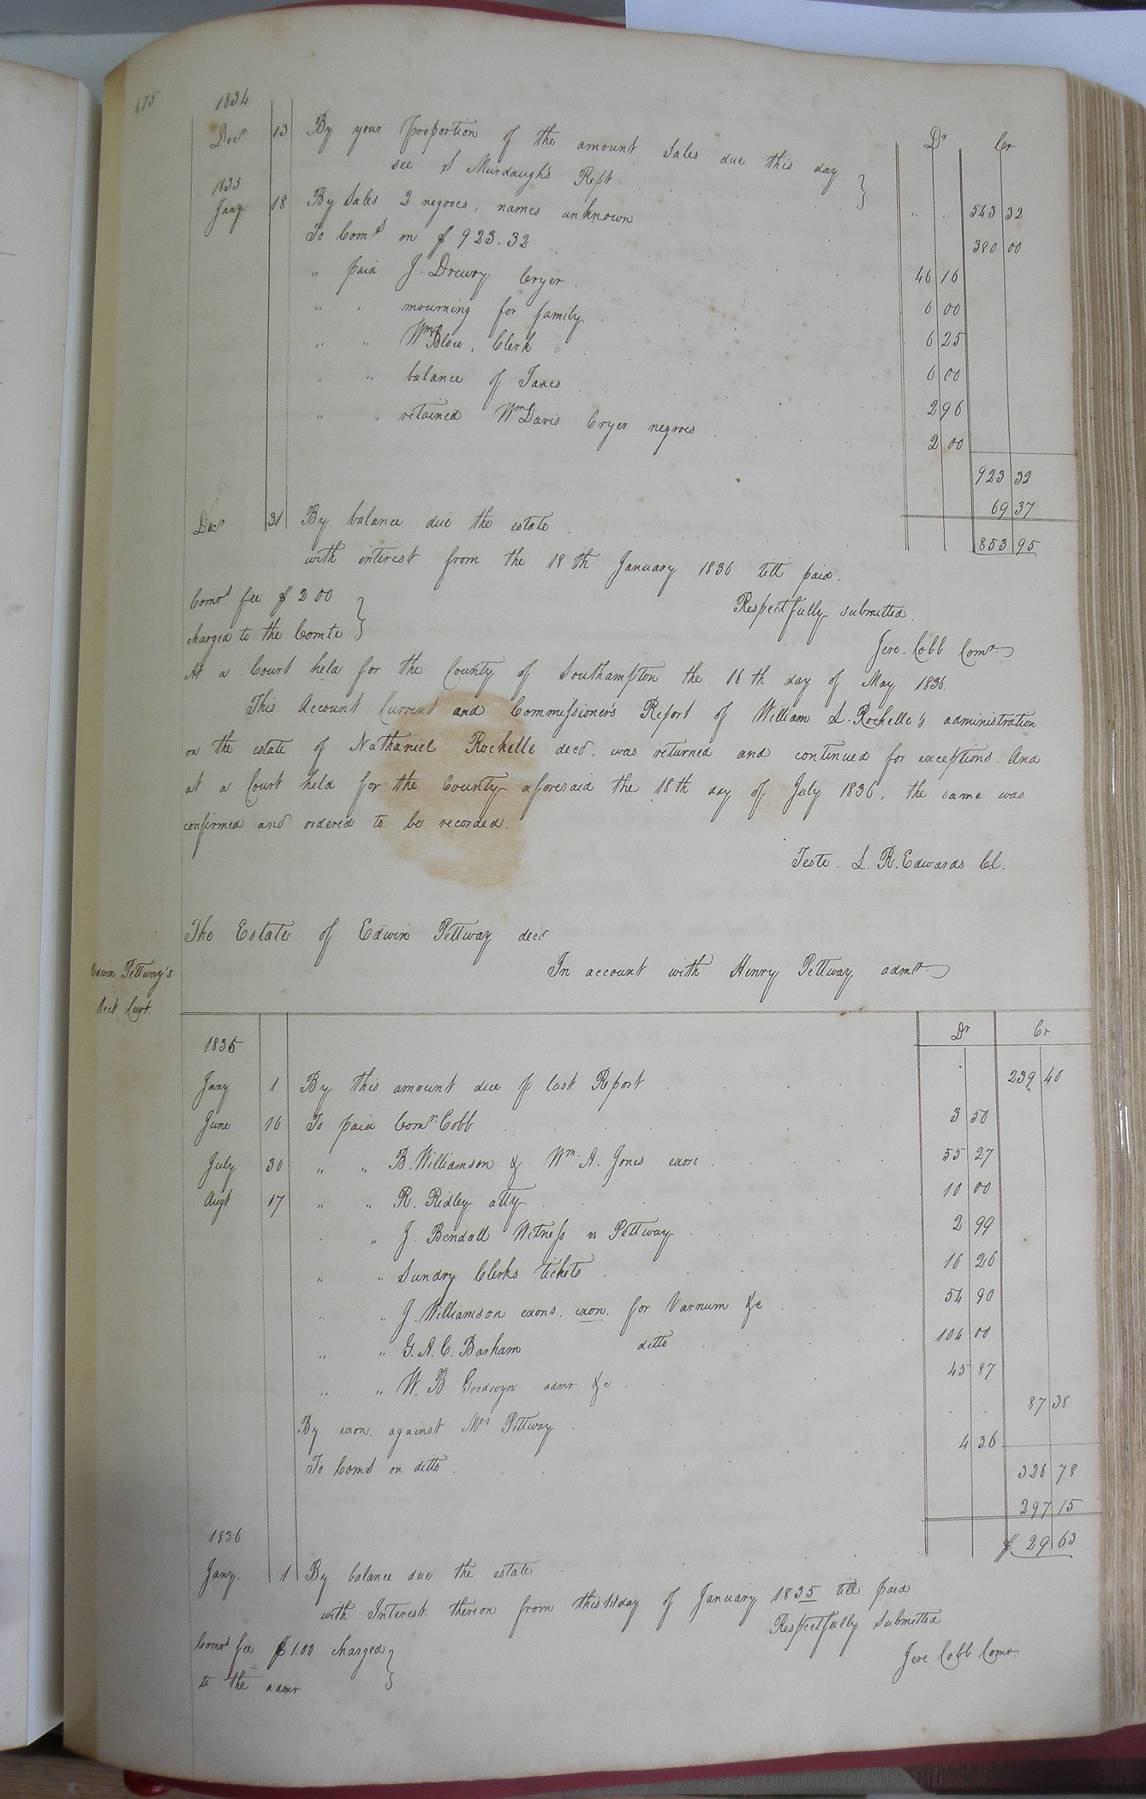 675
1834 Dr Cr
Decr 13 By your Proportion of the amount Sales due this day
see S Murdaugh's Rept 543 32
1835
Jany 18 By Sales 2 negroes, names unknown 380 00
To Comd on $923.32 46 16
" paid J. Drewry Cryer 6 00
" " mourning for family 6 25
" " Wm Blow, Clerk 6 00
" " balance of Taxes 2 96
" " retained Wm Davis Cryer negroes 2 00
923 32
69 37
Decr 31 By balance due the estate 853 95
with interest from the 18th January 1836 till paid.
Comrs fee $2 00 Respectfully submitted.
charged to the Comte Jere. Cobb Comr.
At a Court held for the County of Southampton the 16th day of May 1836.
This Account Current and Commissioner's Report of William L. Rochelle's administration
on the estate of Nathaniel Rochelle decd. was returned and continued for exceptions. And
at a Court held for the County aforesaid the 18th day of July 1836, the same was
confirmed and ordered to be recorded.
Teste L. R. Edwards Cl.
The Estate of Edwin Pettway decd
In account with Henry Pettway admr.
Edwin Pettway's
Acct Curt.
Dr Cr
1835
Jany 1 By this amount due p last Report 239 40
June 16 To paid Comr. Cobb 3 50
July 30 " " B. Williamson & Wm. A. Jones exors 55 27
Augt 17 " " R. Ridley atty 10 00
" J. Bendall Witness vs Pettway 2 99
" " Sundry Clerks tickets 16 26
" " J. Williamson exons. exon. for Varnum &c 54 90
" " G. A. C. Barham ditto 104 00
" " W. B Goodwyn admr &c 45 87
By exon. against Mrs Pettway 87 38
To Comd on ditto 4 36
326 78
297 15
1836
Jany. 1 By balance due the estate $ 29 63
with Interest thereon from this 1st day of January 1835 till paid
Respectfully Submitted
Comrs fee $1.00 charged Jere Cobb Comr.
to the admr